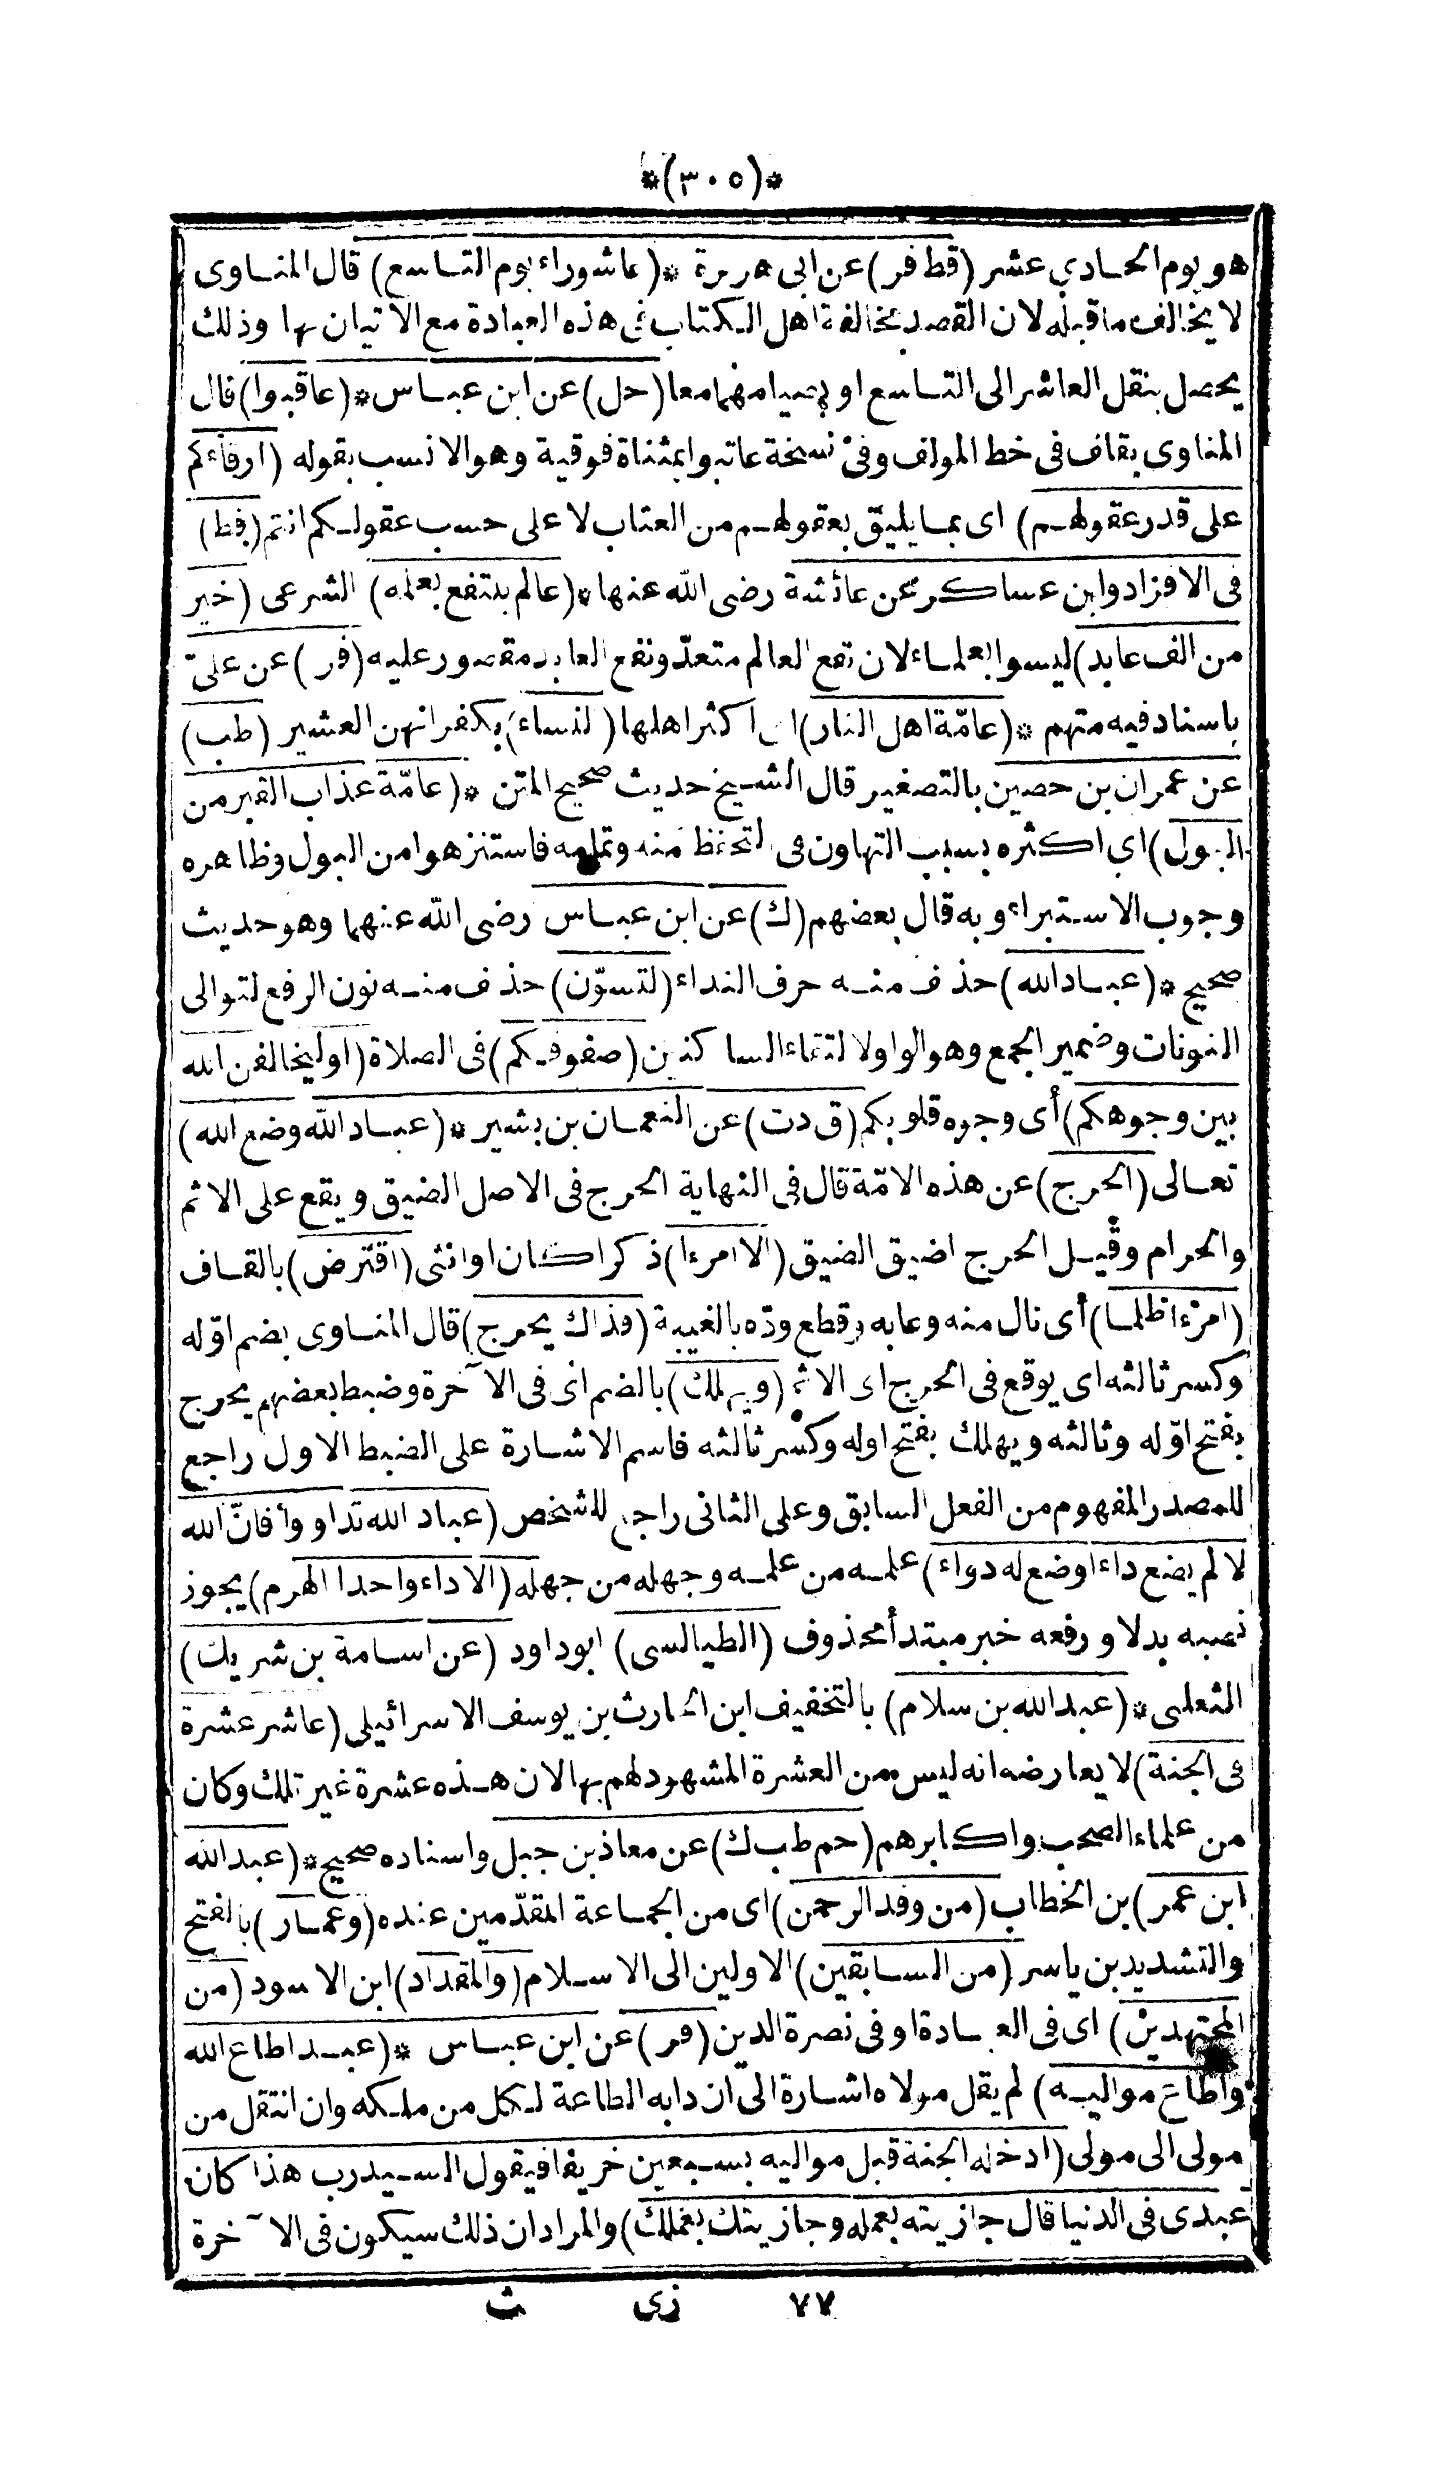 *(٣٠٥)*
هو يوم الحادي عشر (قط فر) عن ابى هريرة *(عاشوراء يوم التاسع) قال المناوى
لا يخالف ما قبله لان القصد مخالفة اهل الكتاب فى هذه العبادة مع الاتيان بها وذلك
يحصل بنقل العاشر الى التاسع او بصيامهما معا (حل) عن ابن عباس*(عاقبوا) قال
المناوى بقاف فى خط المولف وفى نسخة عاتبوا بمثناة فوقية وهو الانسب بقوله (ارقاءكم
على قدر عقولهم) اى بما يليق بعقولهم من العتاب لا على حسب عقولكم انتم (قط)
فى الافراد وابن عساكر عن عائشة رضى الله عنها*(عالم ينتفع بعلمه) الشرعى (خير
من الف عابد) ليسوا بعلماء لان نفع العالم متعدّ ونفع العابد مقصور عليه (فر) عن علىّ
باسناد فيه متهم *(عامّة اهل النار) اى اكثر اهلها (النساء) بكفرانهن العشير (طب)
عن عمران بن حصين بالتصغير قال الشيخ حديث صحيح المتن *(عامّة عذاب القبر من
البول) اى اكثره بسبب التهاون فى التحفظ منه وتمامه فاستنزهوا من البول وظاهره
وجوب الاستبراء وبه قال بعضهم (ك) عن ابن عباس رضى الله عنهما وهو حديث
صحيح *(عباد الله) حذف منه حرف النداء (لتسوّن) حذف منه نون الرفع لتوالى
النونات وضمير الجمع وهو الواو لالتقاء الساكنين (صفوفكم) فى الصلاة (اوليخالفن الله
بين وجوهكم) أى وجوه قلوبكم (ق دت) عن النعمان بن بشير *(عباد الله وضع الله)
تعالى (الحرج) عن هذه الامّة قال فى النهاية الحرج فى الاصل الضيق ويقع على الاثم
والحرام وقيل الحرج اضيق الضيق (الا امرءا) ذكرا كان او انثى (اقترض) بالقاف
(امرءا ظلما) أى نال منه وعابه وقطع ودّه بالغيبة (فذاك يحرج) قال المناوى بضم اوّله
وكسر ثالثه اى يوقع فى الحرج اى الاثم (ويهلك) بالضم اى فى الآخرة وضبط بعضهم يحرج
بفتح اوّله وثالثه ويهلك بفتح اوله وكسر ثالثه فاسم الاشارة على الضبط الاول راجع
للمصدر المفهوم من الفعل السابق وعلى الثانى راجع للشخص (عباد الله تداووأ فانّ الله
لا لم يضع داء اوضع له دواء) علمه من علمه وجهله من جهله (الاداء واحدا الهرم) يجوز
نصبه بدلا ورفعه خبر مبتدأ محذوف (الطيالسى) ابو داود (عن اسامة بن شريك)
الثعلبى *(عبد الله بن سلام) بالتخفيف ابن الحارث بن يوسف الاسرائيلى (عاشر عشرة
فى الجنة) لا يعارضه انه ليس من العشرة المشهود لهم بها لان هذه عشرة غير تلك وكان
من علماء الصحب واكابرهم (حم طب ك) عن معاذ بن جبل واسناده صحيح*(عبد الله
ابن عمر) بن الخطاب (من وفد الرحمن) اى من الجماعة المقدّمين عنده (وعمار) بالفتح
والتشديد بن ياسر (من السابقين) الاولين الى الاسلام (والمقداد) ابن الاسود (من
المجتهدين) اى فى العبادة او فى نصرة الدين (فر) عن ابن عباس *(عبد اطاع الله
واطاع مواليه) لم يقل مولاه اشارة الى ان دابه الطاعة لكل من ملكه وان انتقل من
مولى الى مولى (ادخله الجنة قبل مواليه بسبعين خريفا فيقول السيد رب هذا كان
عبدى فى الدنيا قال جازيته بعمله وجازيتك بعملك) والمراد ان ذلك سيكون فى الآخرة
٧٧ زى ث